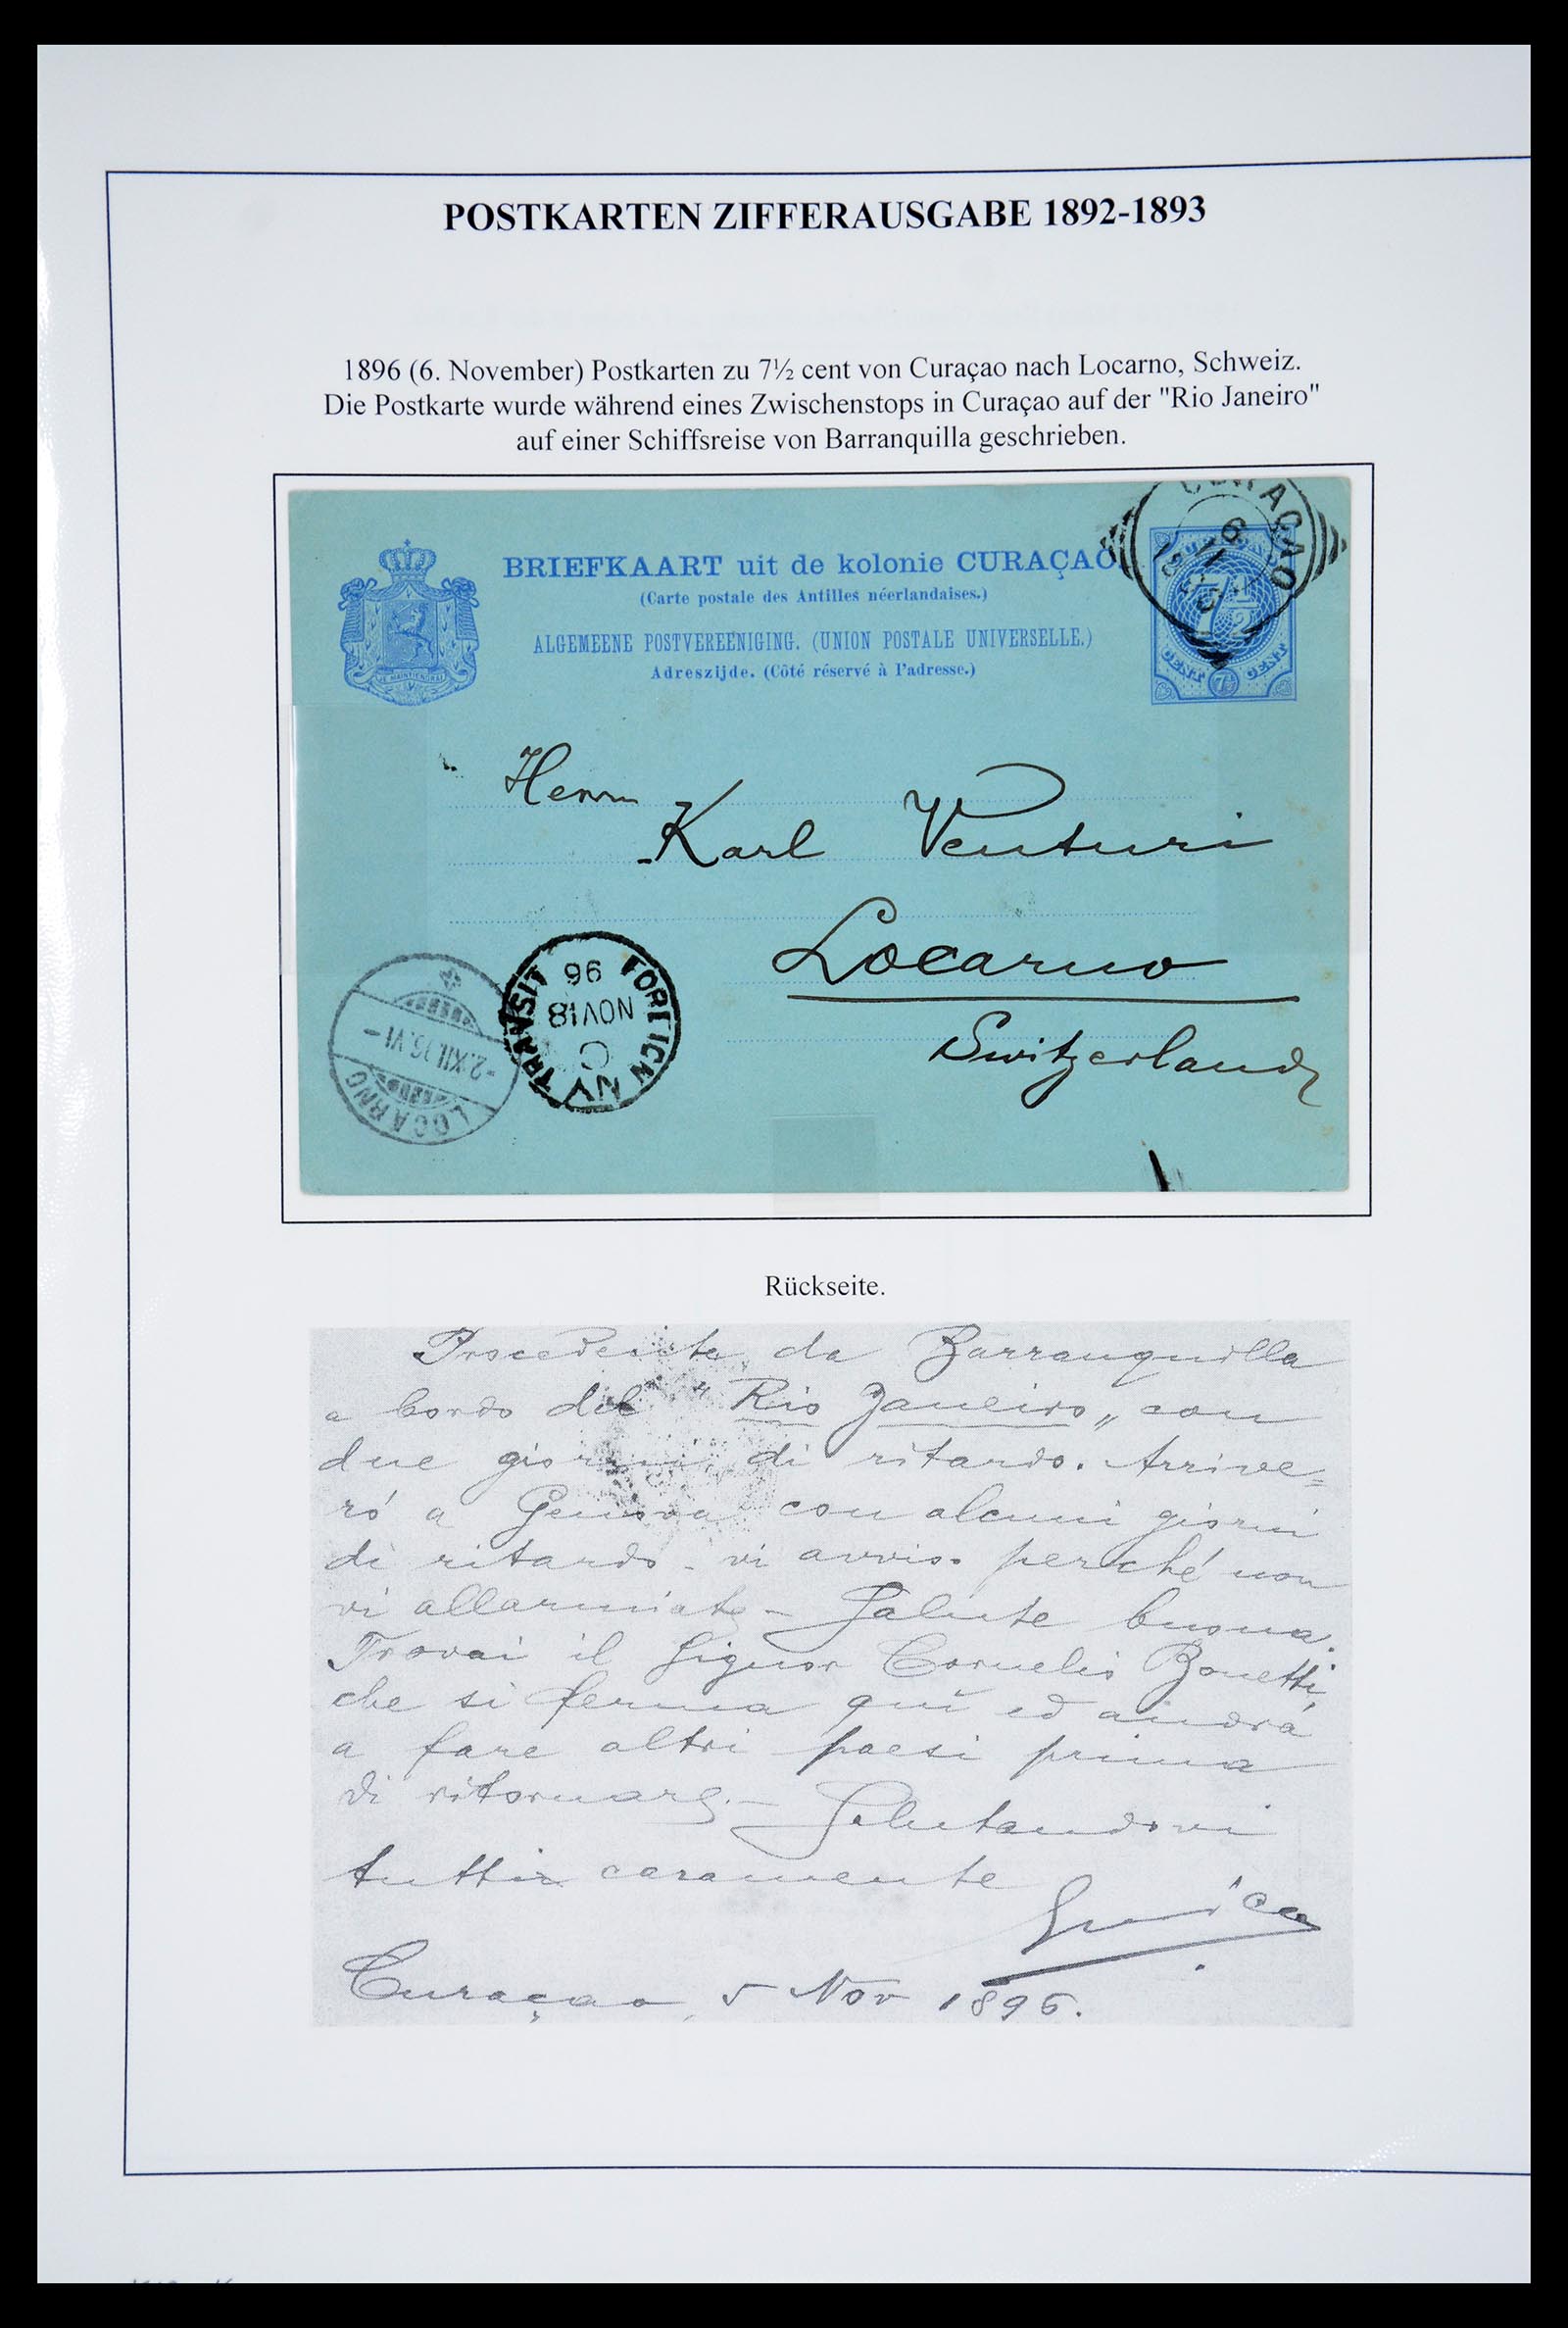 POSTKARTEN ZIFFERAUSGABE 1892-1893
1896 (6. November) Postkarten zu 7½ cent von Curaçao nach Locarno, Schweiz.
Die Postkarte wurde während eines Zwischenstops in Curaçao auf der "Rio Janeiro"
auf einer Schiffsreise von Barranquilla geschrieben.
CURAÇAO
6
BRIEFKAART uit de kolonie CURAÇAO
(Carte postale des Antilles néerlandaises.)
ALGEMEENE POSTVEREENIGING. (UNION POSTALE UNIVERSELLE.)
Adreszijde. (Côté réservé à l'adresse.)
JE MAINTIENDRAI
7½
CENT 7½ CENT
Herrn
Karl Venturi
Locarno
Switzerland
NY FOREIGN TRANSIT
C
NOV 18
96
LOCARNO
-2.XII.96.VI-
Rückseite.
Procedente da Barranquilla
a bordo del "Rio Janeiro„ con
due giorni di ritardo. Arrive=
ró a Genova con alcuni giorni
di ritardo - vi avviso perché non
vi allarmiate - Salute buona.
Trovai il Signor Cornelio Bonetti,
che si ferma qui ed andrá
a fare altri paesi prima
di ritornare. - Salutandovi
tutti caramente
Curaçao, 5 Nov 1896.